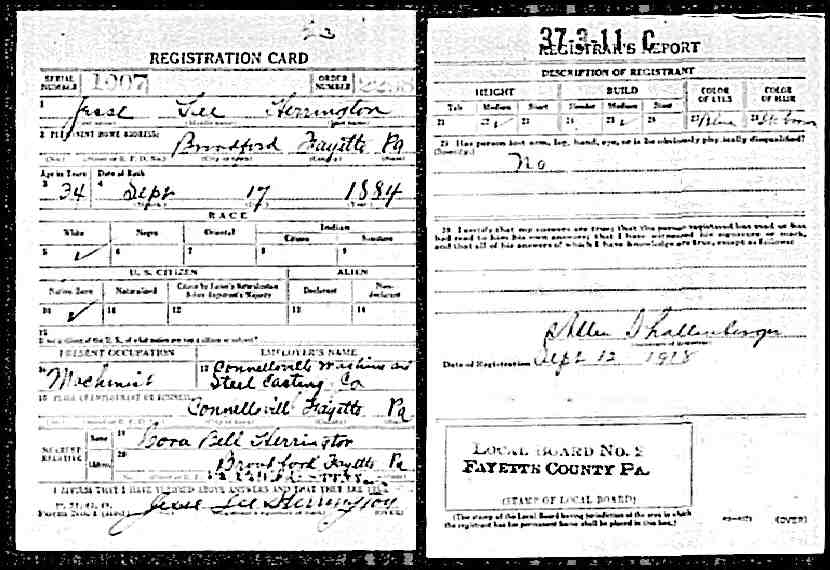 23
REGISTRATION CARD
SERIAL NUMBER 1907 ORDER NUMBER
1 Jesse Lee Herrington
2 PERMANENT HOME ADDRESS:
Broadford Fayette Pa
Age in Years Date of Birth
3 34 4 Sept 17 1884
RACE
White Negro Oriental Indian
Citizen Noncitizen
5 ✓ 6 7 8 9
U. S. CITIZEN ALIEN
Native Born Naturalized Citizen by Father's Naturalization Before Registrant's Majority Declarant Non-declarant
10 ✓ 11 12 13 14
15
If not a citizen of the U. S., of what nation are you a citizen or subject?
PRESENT OCCUPATION EMPLOYER'S NAME
16 Machinist 17 Connellsville Machine and
Steel Casting Co
18 PLACE OF EMPLOYMENT OR BUSINESS
Connellsvill Fayette Pa
NEAREST RELATIVE Name 19 Cora Bell Herrington
Address 20 Broadford Fayette Pa
I AFFIRM THAT I HAVE VERIFIED ABOVE ANSWERS AND THAT THEY ARE TRUE
P. M. G. O.
Form No. 1 (Red) Jesse Lee Herrington (OVER)
37-3-11 C
REGISTRAR'S REPORT
DESCRIPTION OF REGISTRANT
HEIGHT BUILD COLOR OF EYES COLOR OF HAIR
Tall Medium Short Slender Medium Stout
21 22 ✓ 23 24 25 ✓ 26 27 Blue
29 Has person lost arm, leg, hand, eye, or is he obviously physically disqualified?
(Specify.)
No
30 I certify that my answers are true; that the person registered has read or has
had read to him his own answers; that I have witnessed his signature or mark,
and that all of his answers of which I have knowledge are true, except as follows:
Date of Registration Sept 12 1918
LOCAL BOARD NO. 2
FAYETTE COUNTY PA.
(STAMP OF LOCAL BOARD)
(The stamp of the Local Board having jurisdiction of the area in which
the registrant has his permanent home shall be placed in this box.)
(OVER)